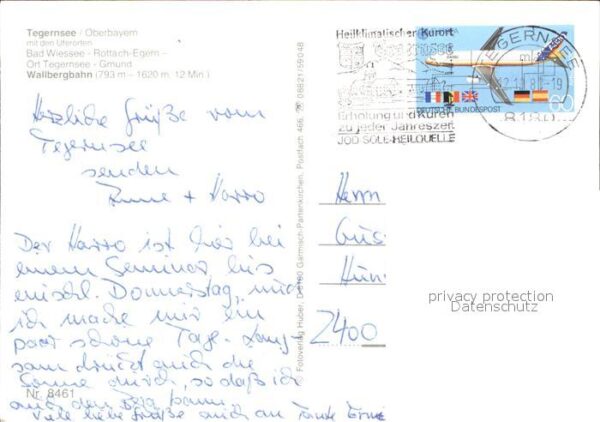 Tegernsee / Oberbayern
mit den Uferorten
Bad Wiessee - Rottach-Egern -
Ort Tegernsee - Gmund
Wallbergbahn (793 m – 1620 m, 12 Min.)
Herzliche Grüße vom
Tegernsee
senden
+ Harro
Der Harro ist hier bei
einem Seminar bis
einschl. Donnerstag, und
ich mache mir ein
paar schöne Tage. Lang-
sam drückt auch die
Sonne durch, so daß ich
auf den Berg kann.
Viele liebe Grüße auch an Tante Erni
Nr. 8461
Fotoverlag Huber, D-8100 Garmisch-Partenkirchen, Postfach 466, ☎ 08821/59048
Heilklimatischer Kurort
Erholung und Kuren
zu jeder Jahreszeit
JOD-SOLE-HEILQUELLE
TEGERNSEE
8180
DEUTSCHE BUNDESPOST
60
Herrn
2400
privacy protection
Datenschutz